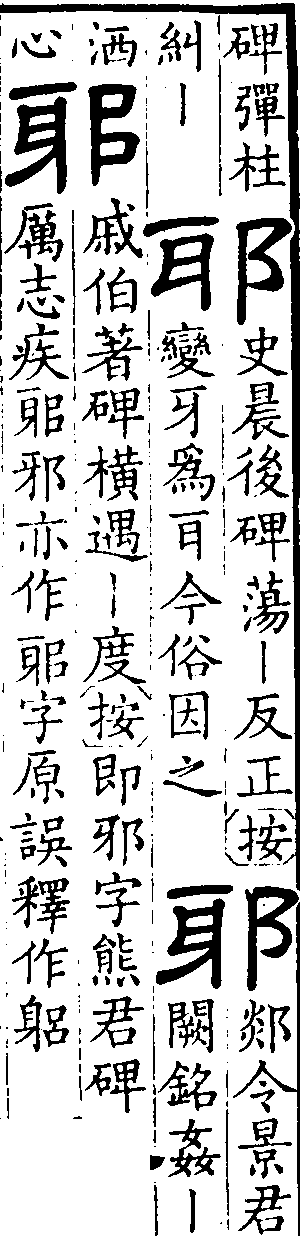 碑彈柱
糾丨
耶
史晨後碑蕩丨反正按
變牙爲耳今俗因之
耶
郯令景君
闕銘姦丨
洒
心
戚伯著碑橫遇丨度按即邪字熊君碑
厲志疾邪亦作字原誤釋作躳